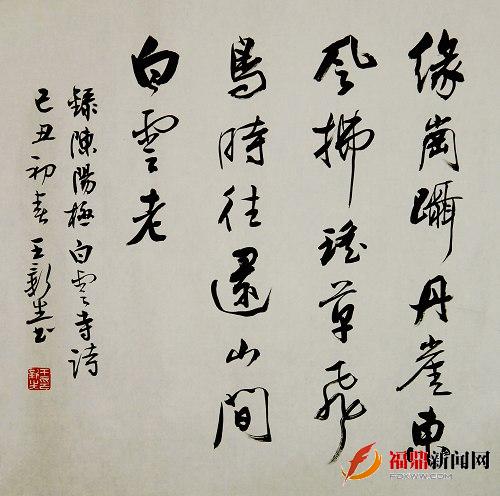 緣崗躡丹崖東
風拂瑤草飛
鳥時往還山間
白雲老
錄陳陽極白雲寺詩
己丑初春王新生書
福鼎新闻网
FDXWW.COM